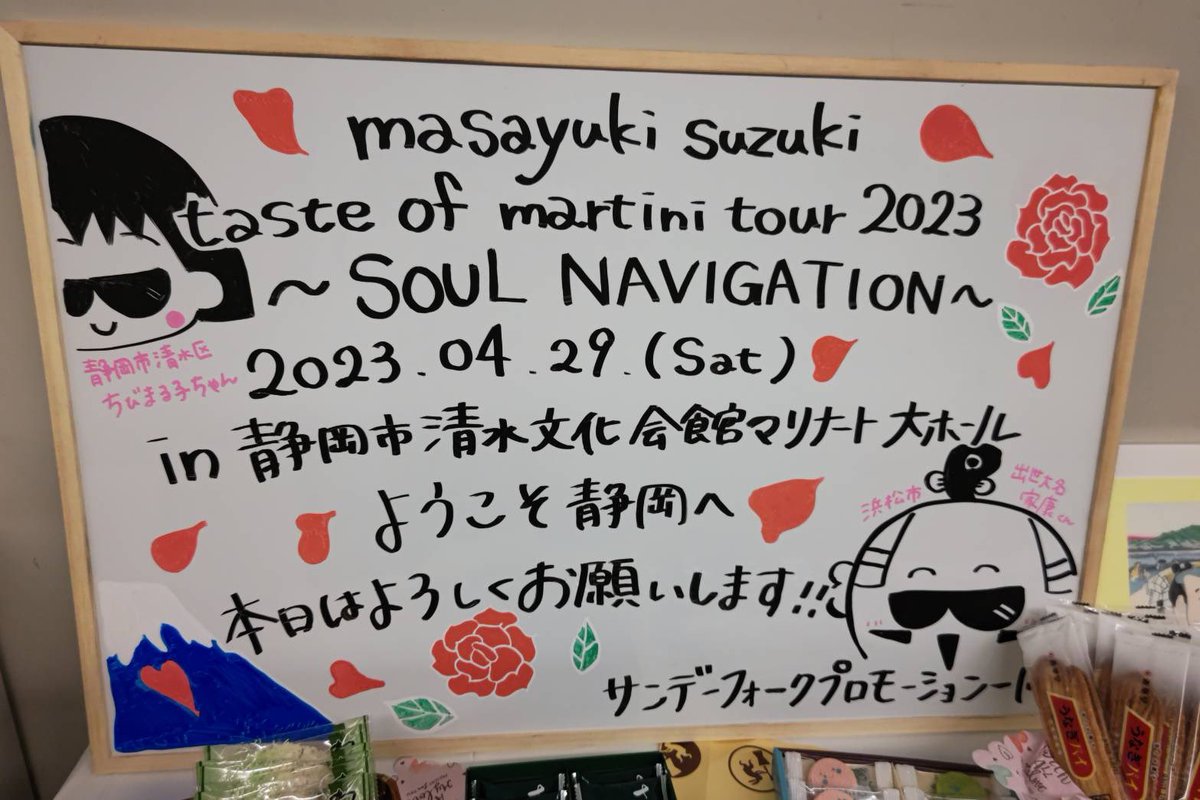 masayuki suzuki
taste of martini tour 2023
～SOUL NAVIGATION～
静岡市清水区
ちびまる子ちゃん
2023.04.29.(Sat)
in 静岡市清水文化会館マリナート大ホール
浜松市
出世大名
家康くん
ようこそ静岡へ
本日はよろしくお願いします!!
サンデーフォークプロモーション一同
うなぎパイ
うなぎパイ